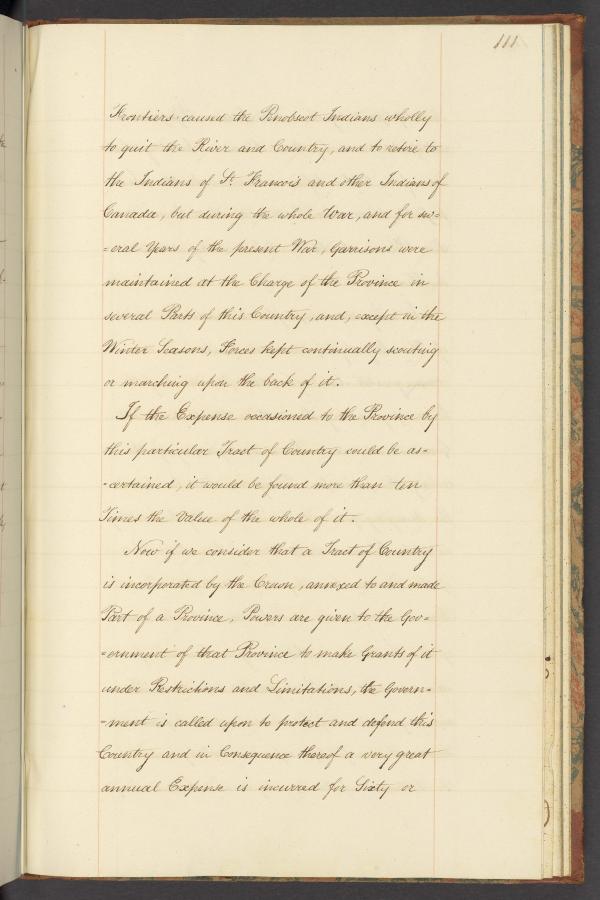 111
Frontiers caused the Penobscot Indians wholly
to quit the River and Country, and to retire to
the Indians of St. Francois and other Indians of
Canada, but during the whole War, and for sev=
=eral Years of the present War, Garrisons were
maintained at the Charge of the Province in
several Parts of this Country, and, except in the
Winter Seasons, Forces kept continually scouting
or marching upon the back of it.
If the Expense occasioned to the Province by
this particular Tract of Country could be as-
-certained, it would be found more than ten
Times the Value of the whole of it.
Now if we consider that a Tract of Country
is incorporated by the Crown, annexed to and made
Part of a Province, Powers are given to the Gov=
=ernment of that Province to make Grants of it
under Restrictions and Limitations, the Govern=
=ment is called upon to protect and defend this
Country and in Consequence thereof a very great
annual Expense is incurred for Sixty or